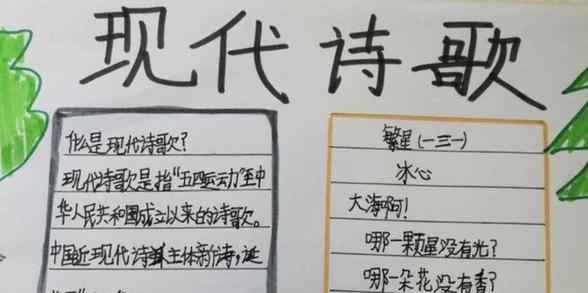 现代诗歌
什么是现代诗歌？
现代诗歌是指"五四运动"至中
华人民共和国成立以来的诗歌。
中国近现代诗主体新诗，诞
繁星（一三一）
冰心
大海啊！
哪一颗星没有光？
哪一朵花没有香？